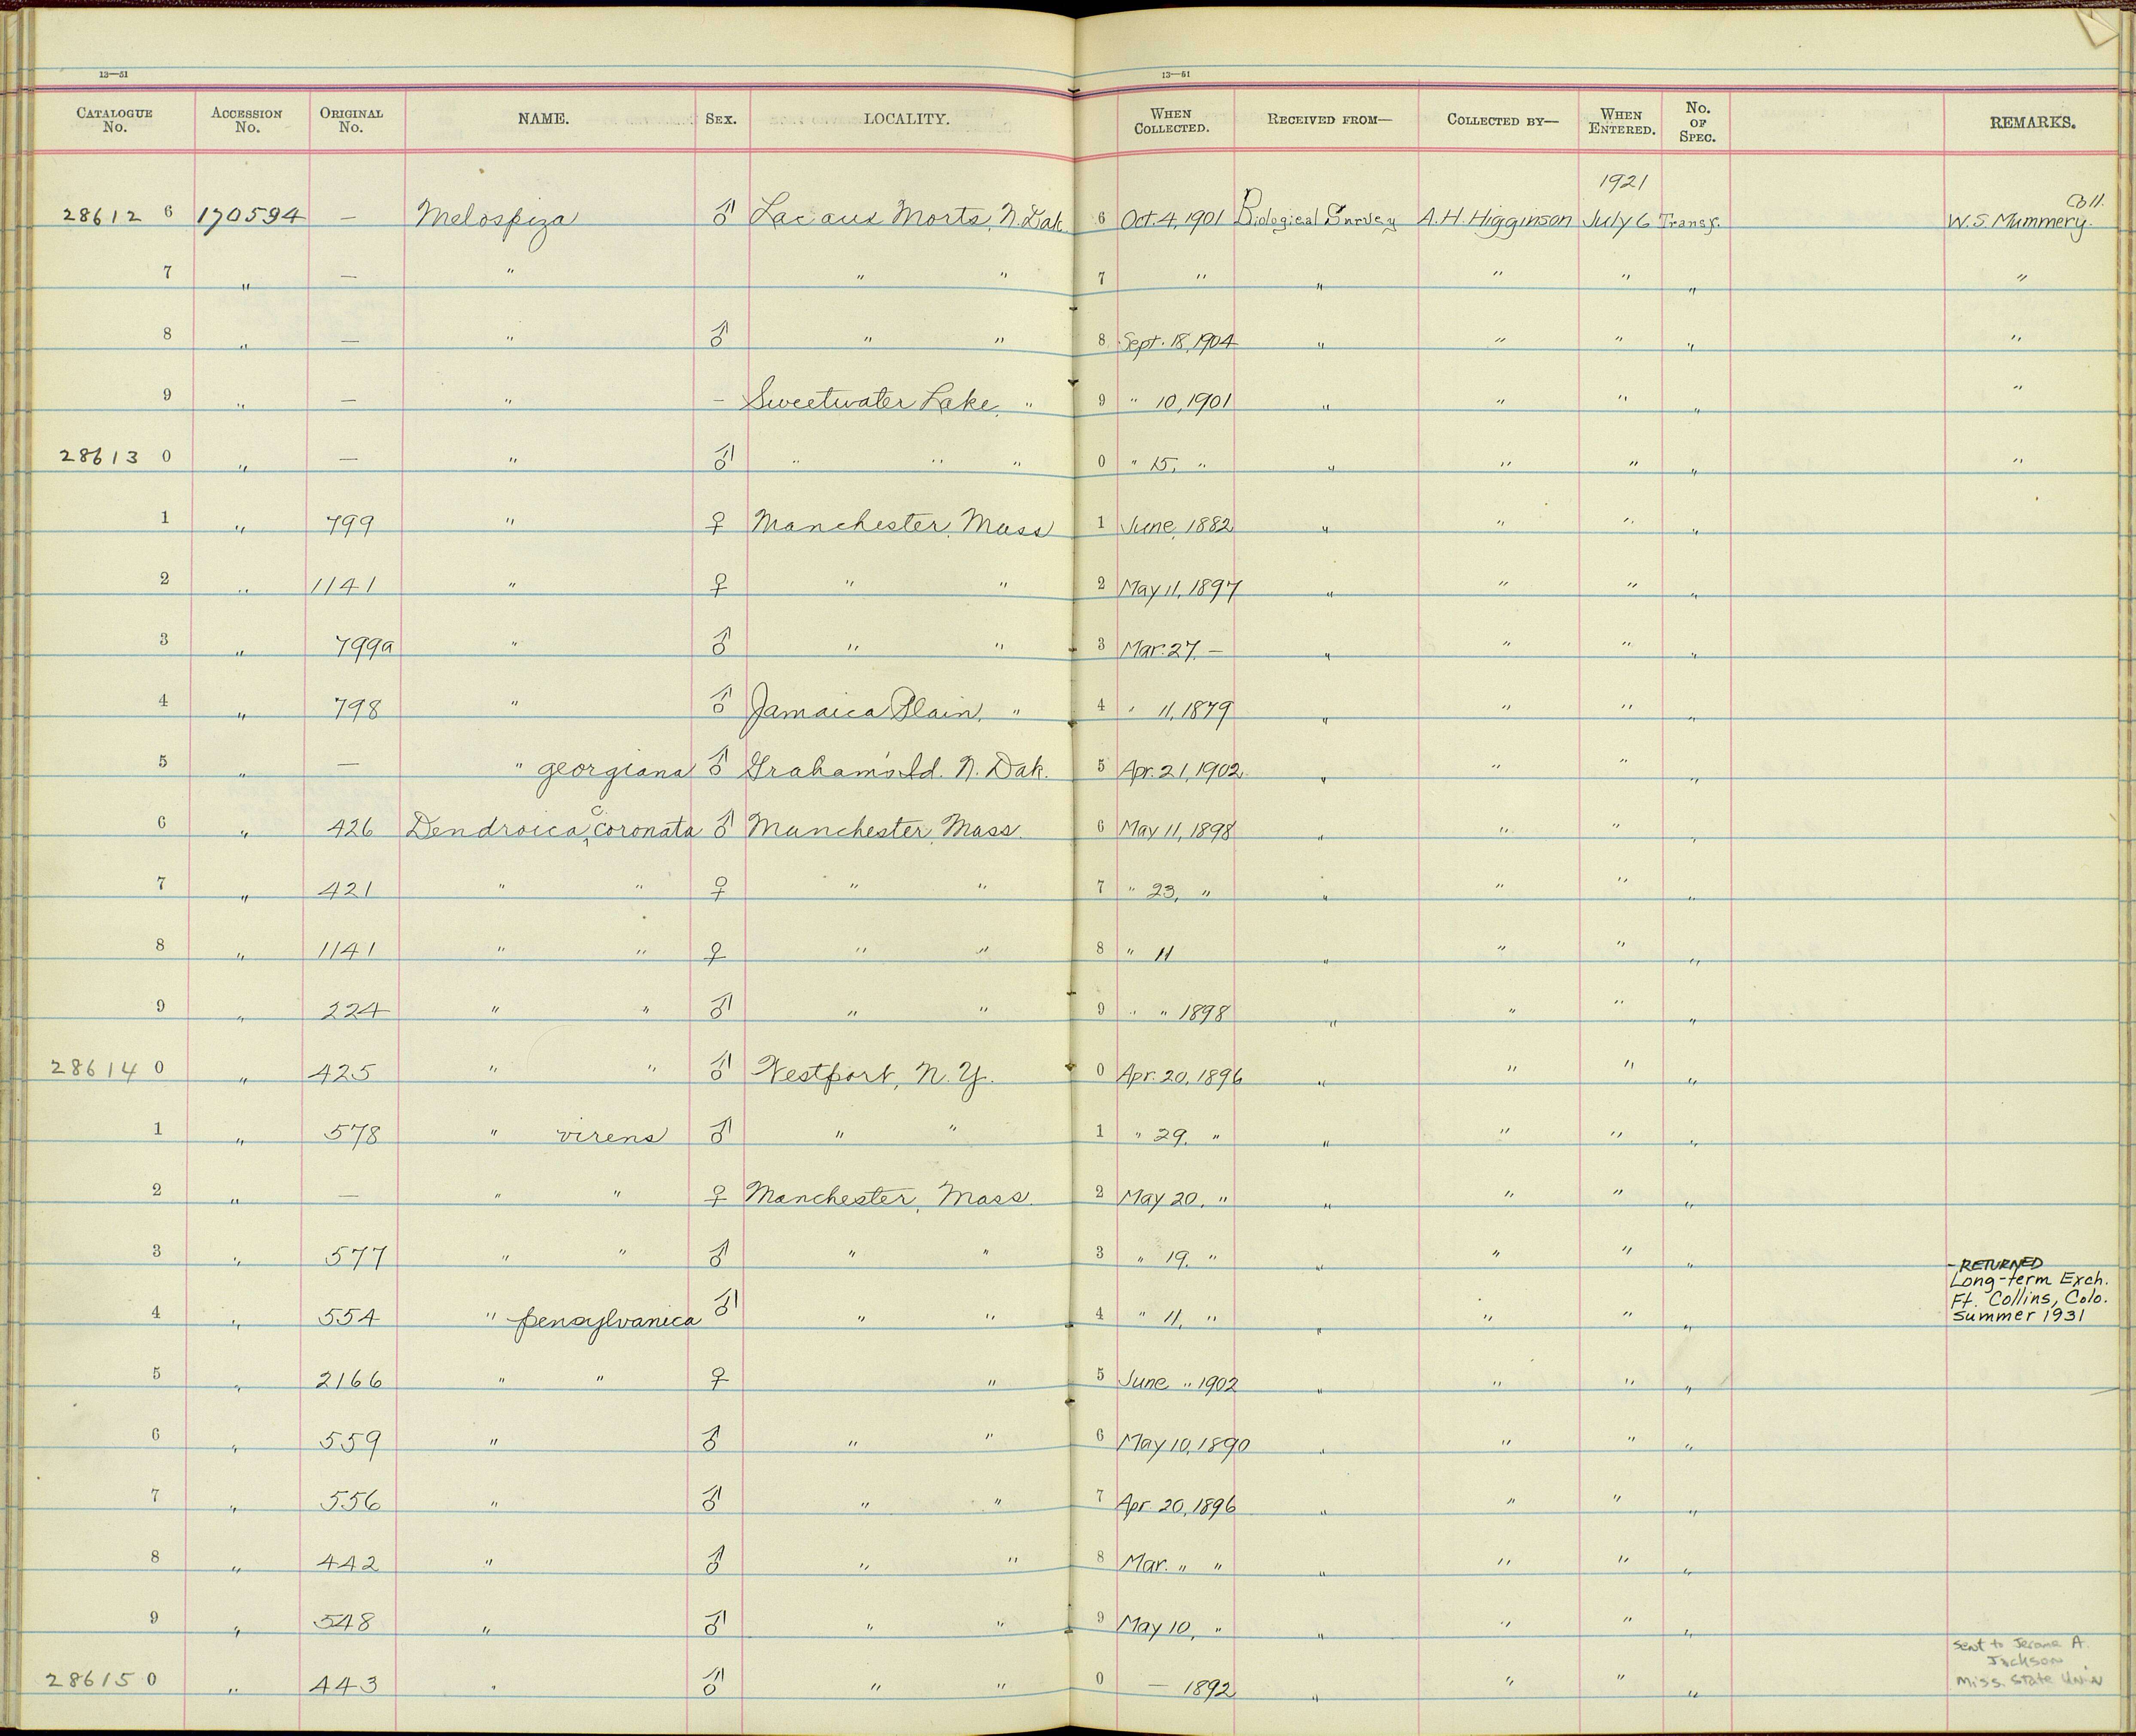 13—51
13—51
CATALOGUE No. ACCESSION No. ORIGINAL No. NAME. SEX. LOCALITY. WHEN COLLECTED. RECEIVED FROM— COLLECTED BY— WHEN ENTERED. No. OF SPEC. REMARKS.
1921
28612 6 170594 — Melospiza ♂ Lac aux Morts, N. Dak. 6 Oct. 4, 1901 Biological Survey A.H. Higginson July 6 Transf. Coll. W.S. Mummery.
7 " — " " " 7 " " " " " "
8 " — " ♂ " " 8 Sept. 18, 1904 " " " " "
9 " — " – Sweetwater Lake, " 9 " 10, 1901 " " " " "
28613 0 " — " ♂ " " " 0 " 15, " " " " " "
1 " 799 " ♀ Manchester, Mass 1 June, 1882 " " " "
2 " 1141 " ♀ " " 2 May 11, 1897 " " " "
3 " 799a " ♂ " " 3 Mar. 27, — " " " "
4 " 798 " ♂ Jamaica Plain, " 4 " 11, 1879 " " " "
5 " — " georgiana ♂ Graham's Id. N. Dak. 5 Apr. 21, 1902 " " " "
6 " 426 Dendroica c. coronata ♂ Manchester, Mass. 6 May 11, 1898 " " " "
7 " 421 " " ♀ " " 7 " 23, " " " " "
8 " 1141 " " ♀ " " 8 " 11 " " " "
9 " 224 " " ♂ " " 9 " " 1898 " " " "
28614 0 " 425 " " ♂ Westport, N.Y. 0 Apr. 20, 1896 " " " "
1 " 578 " virens ♂ " " 1 " 29, " " " " "
2 " — " " ♀ Manchester, Mass. 2 May 20, " " " " "
3 " 577 " " ♂ " " 3 " 19, " " " " "
4 " 554 " pensylvanica ♂ " " 4 " 11, " " " " " - RETURNED
Long-term Exch.
Ft. Collins, Colo.
Summer 1931
5 " 2166 " " ♀ " 5 June " 1902 " " " "
6 " 559 " ♂ " " 6 May 10, 1890 " " " "
7 " 556 " ♂ " " 7 Apr. 20, 1896 " " " "
8 " 442 " ♂ " " 8 Mar. " " " " " "
9 " 548 " ♂ " " 9 May 10, " " " " "
28615 0 " 443 " ♂ " " 0 — 1892 " " " " sent to Jerome A.
Jackson
Miss. State Univ